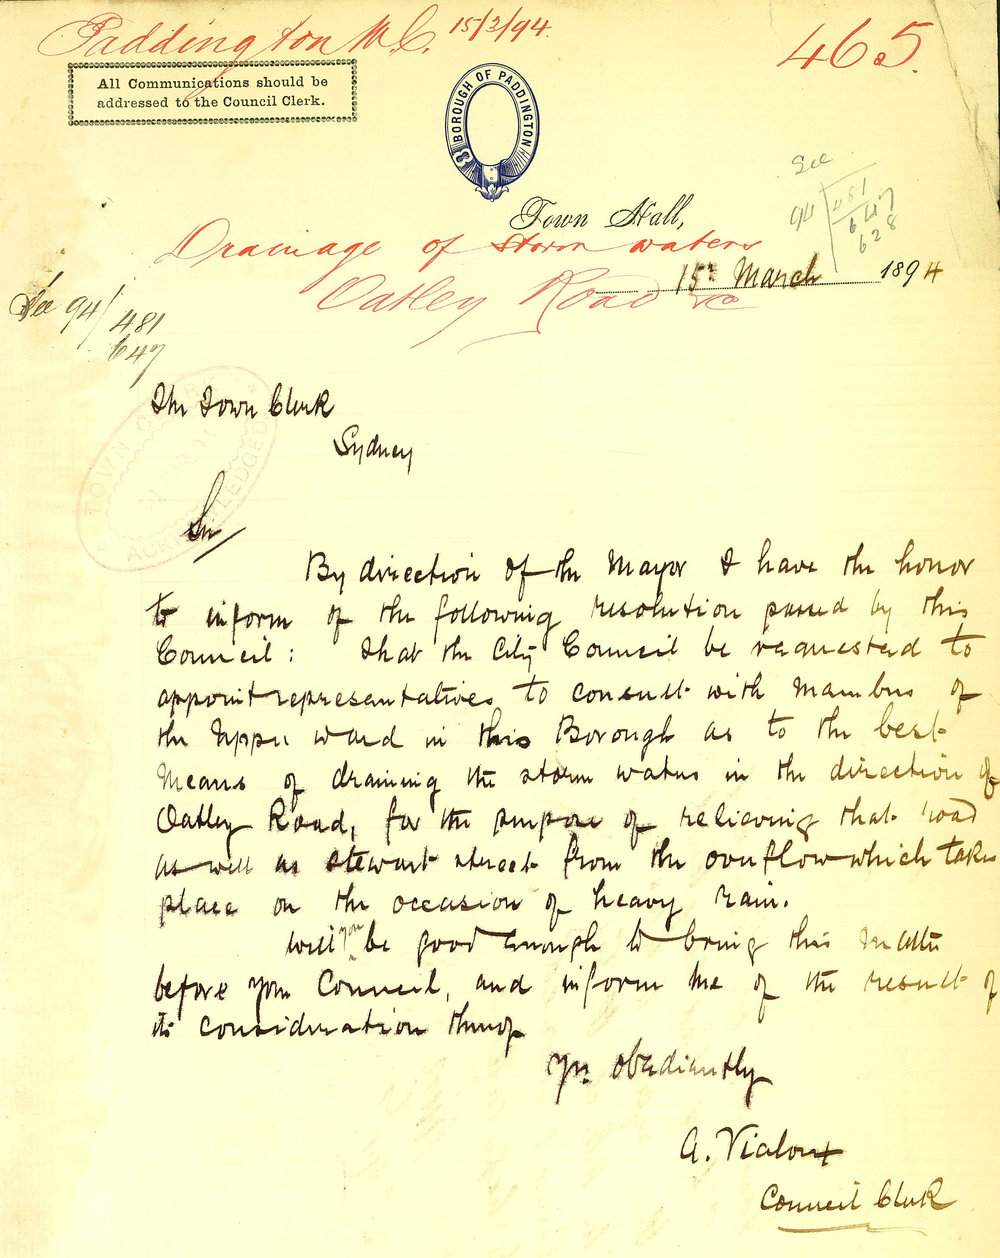 Paddington M.C. 15/3/94.
465.
All Communications should be
addressed to the Council Clerk.
BOROUGH OF PADDINGTON
See
94 481
647
628
Town Hall,
Drainage of storm waters
15th March 1894
Oatley Road &c
See 94/481
647
TOWN CLERK
MAR
ACKNOWLEDGED
The Town Clerk
Sydney
Sir/
By direction of the Mayor I have the honor
to inform of the following resolution passed by this
Council: That the City Council be requested to
appoint representatives to consult with Members of
the Upper ward in this Borough as to the best
Means of draining the storm waters in the direction of
Oatley Road, for the purpose of relieving that road
as well as Stewart street from the overflow which takes
place on the occasion of heavy rain.
Will you be good enough to bring this Matter
before your Council, and inform me of the result of
its consideration thereof
Yrs obediently
A. Vialoux
Council Clerk